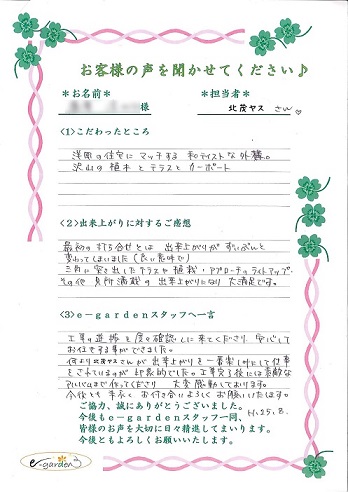 お客様の声を聞かせてください♪
＊お名前＊
＊担当者＊
様
北茂ヤス さん♡
<1>こだわったところ
洋風の住宅に マッチする 和テイストな外構。
沢山の植木と テラスと カーポート
<2>出来上がりに対するご感想
最初の打ち合せとは 出来上がりが ずいぶんと
変わってしまいました（良い意味で）
三角に突き出したテラスや植栽・アプローチのライトアップ・
その他 見所満載の 出来上がりになり 大満足です。
<3>e-gardenスタッフへ一言
工事の進捗を度々確認しに来てくださり 安心して
お任せする事ができました。
何より北茂ヤスさんが 出来上がりを一番楽しみにして仕事
をされているのが 印象的でした。工事完了後には素敵な
アルバムまで作ってくださり 大変感動しております。
今後とも 末永く お付き合いよろしくお願いいたします。
ご協力、誠にありがとうございました。
H.25.8.
今後もe-gardenスタッフ一同、
皆様のお声を大切に日々精進してまいります。
今後ともよろしくお願いいたします。
e-garden